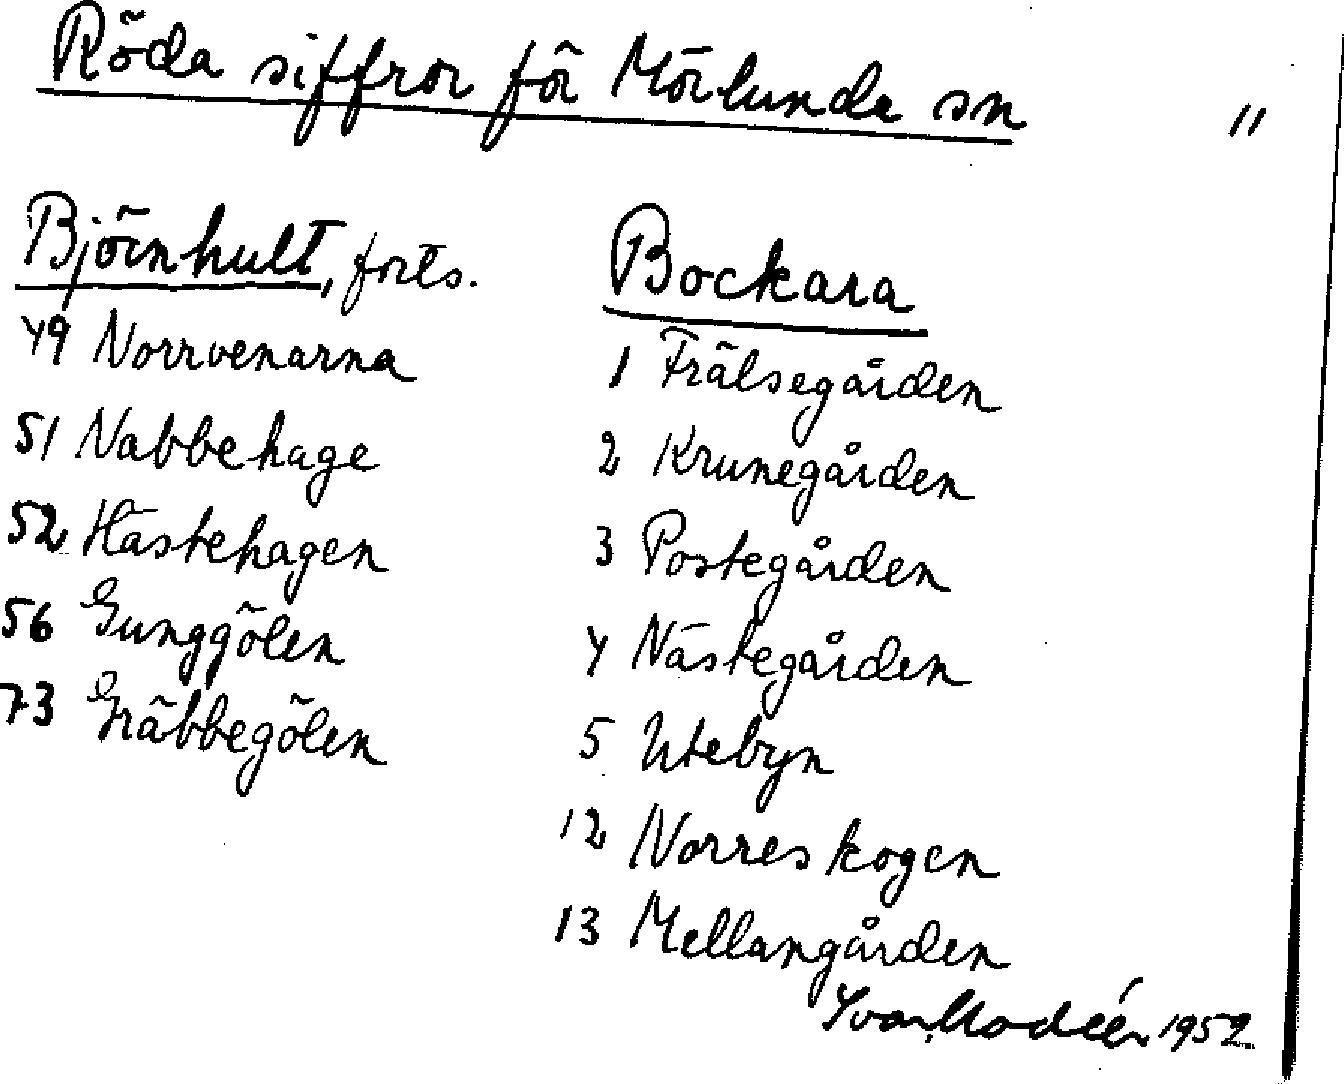 Röda siffror för Mörlunda sn
11
Björnhult, forts.
49 Norrvenarna
51 Nabbehage
52 Hästehagen
56 Gunggölen
73 Gräbbegölen
Bockara
1 Frälsegården
2 Krunegården
3 Postegården
4 Nästegården
5 Utebyn
12 Norreskogen
13 Mellangården
Ivar Modéer 1952